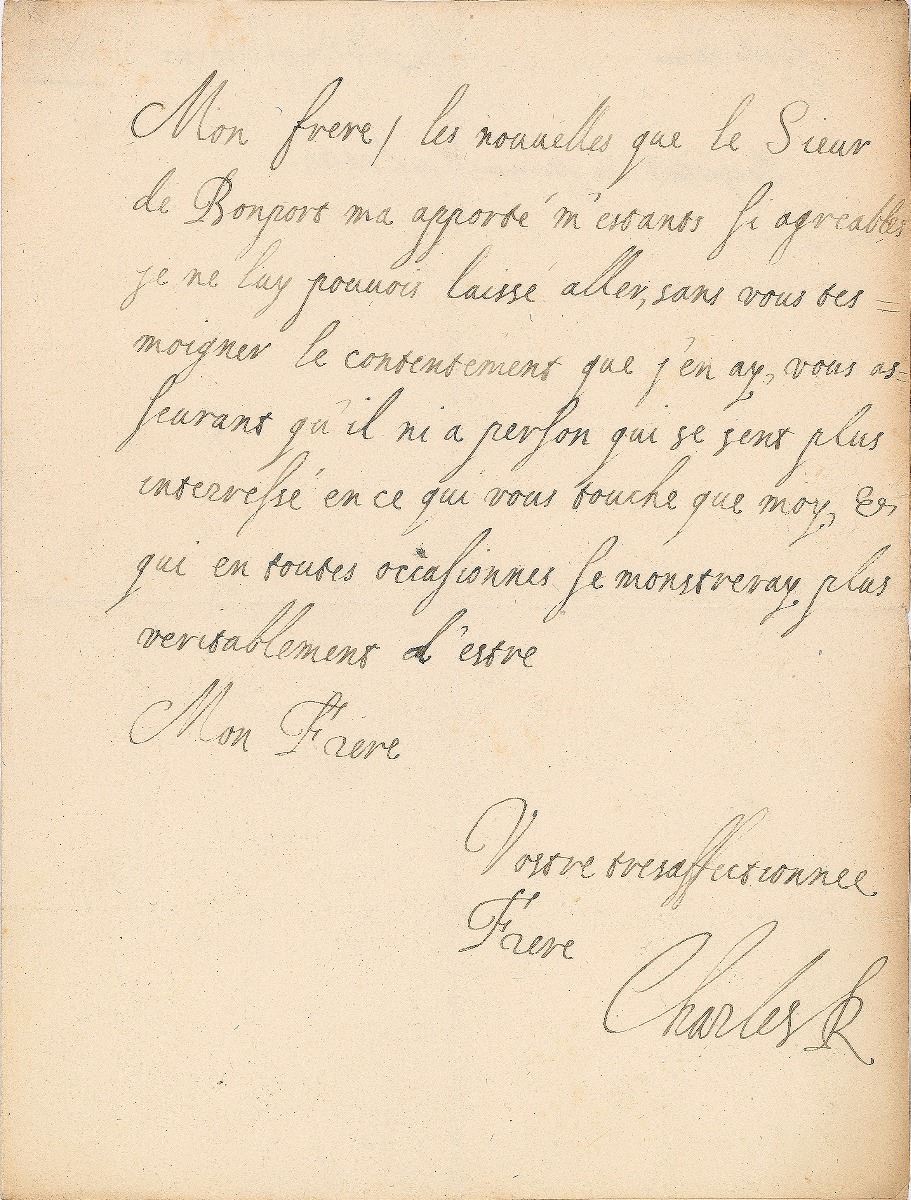 Mon frere / les nouuelles que le Sieur
de Bonport ma apporté m'estants si agreables
je ne luy pouuois laissé aller, sans vous tes=
moigner le contentement que j'en ay, vous as=
seurant qu'il ni a person qui se sent plus
interressé en ce qui vous touche que moy, &
qui en toutes occasionnes se monstreray plus
veritablement d'estre
Mon Frere
Vostre tresaffectionnee
Frere
Charles R